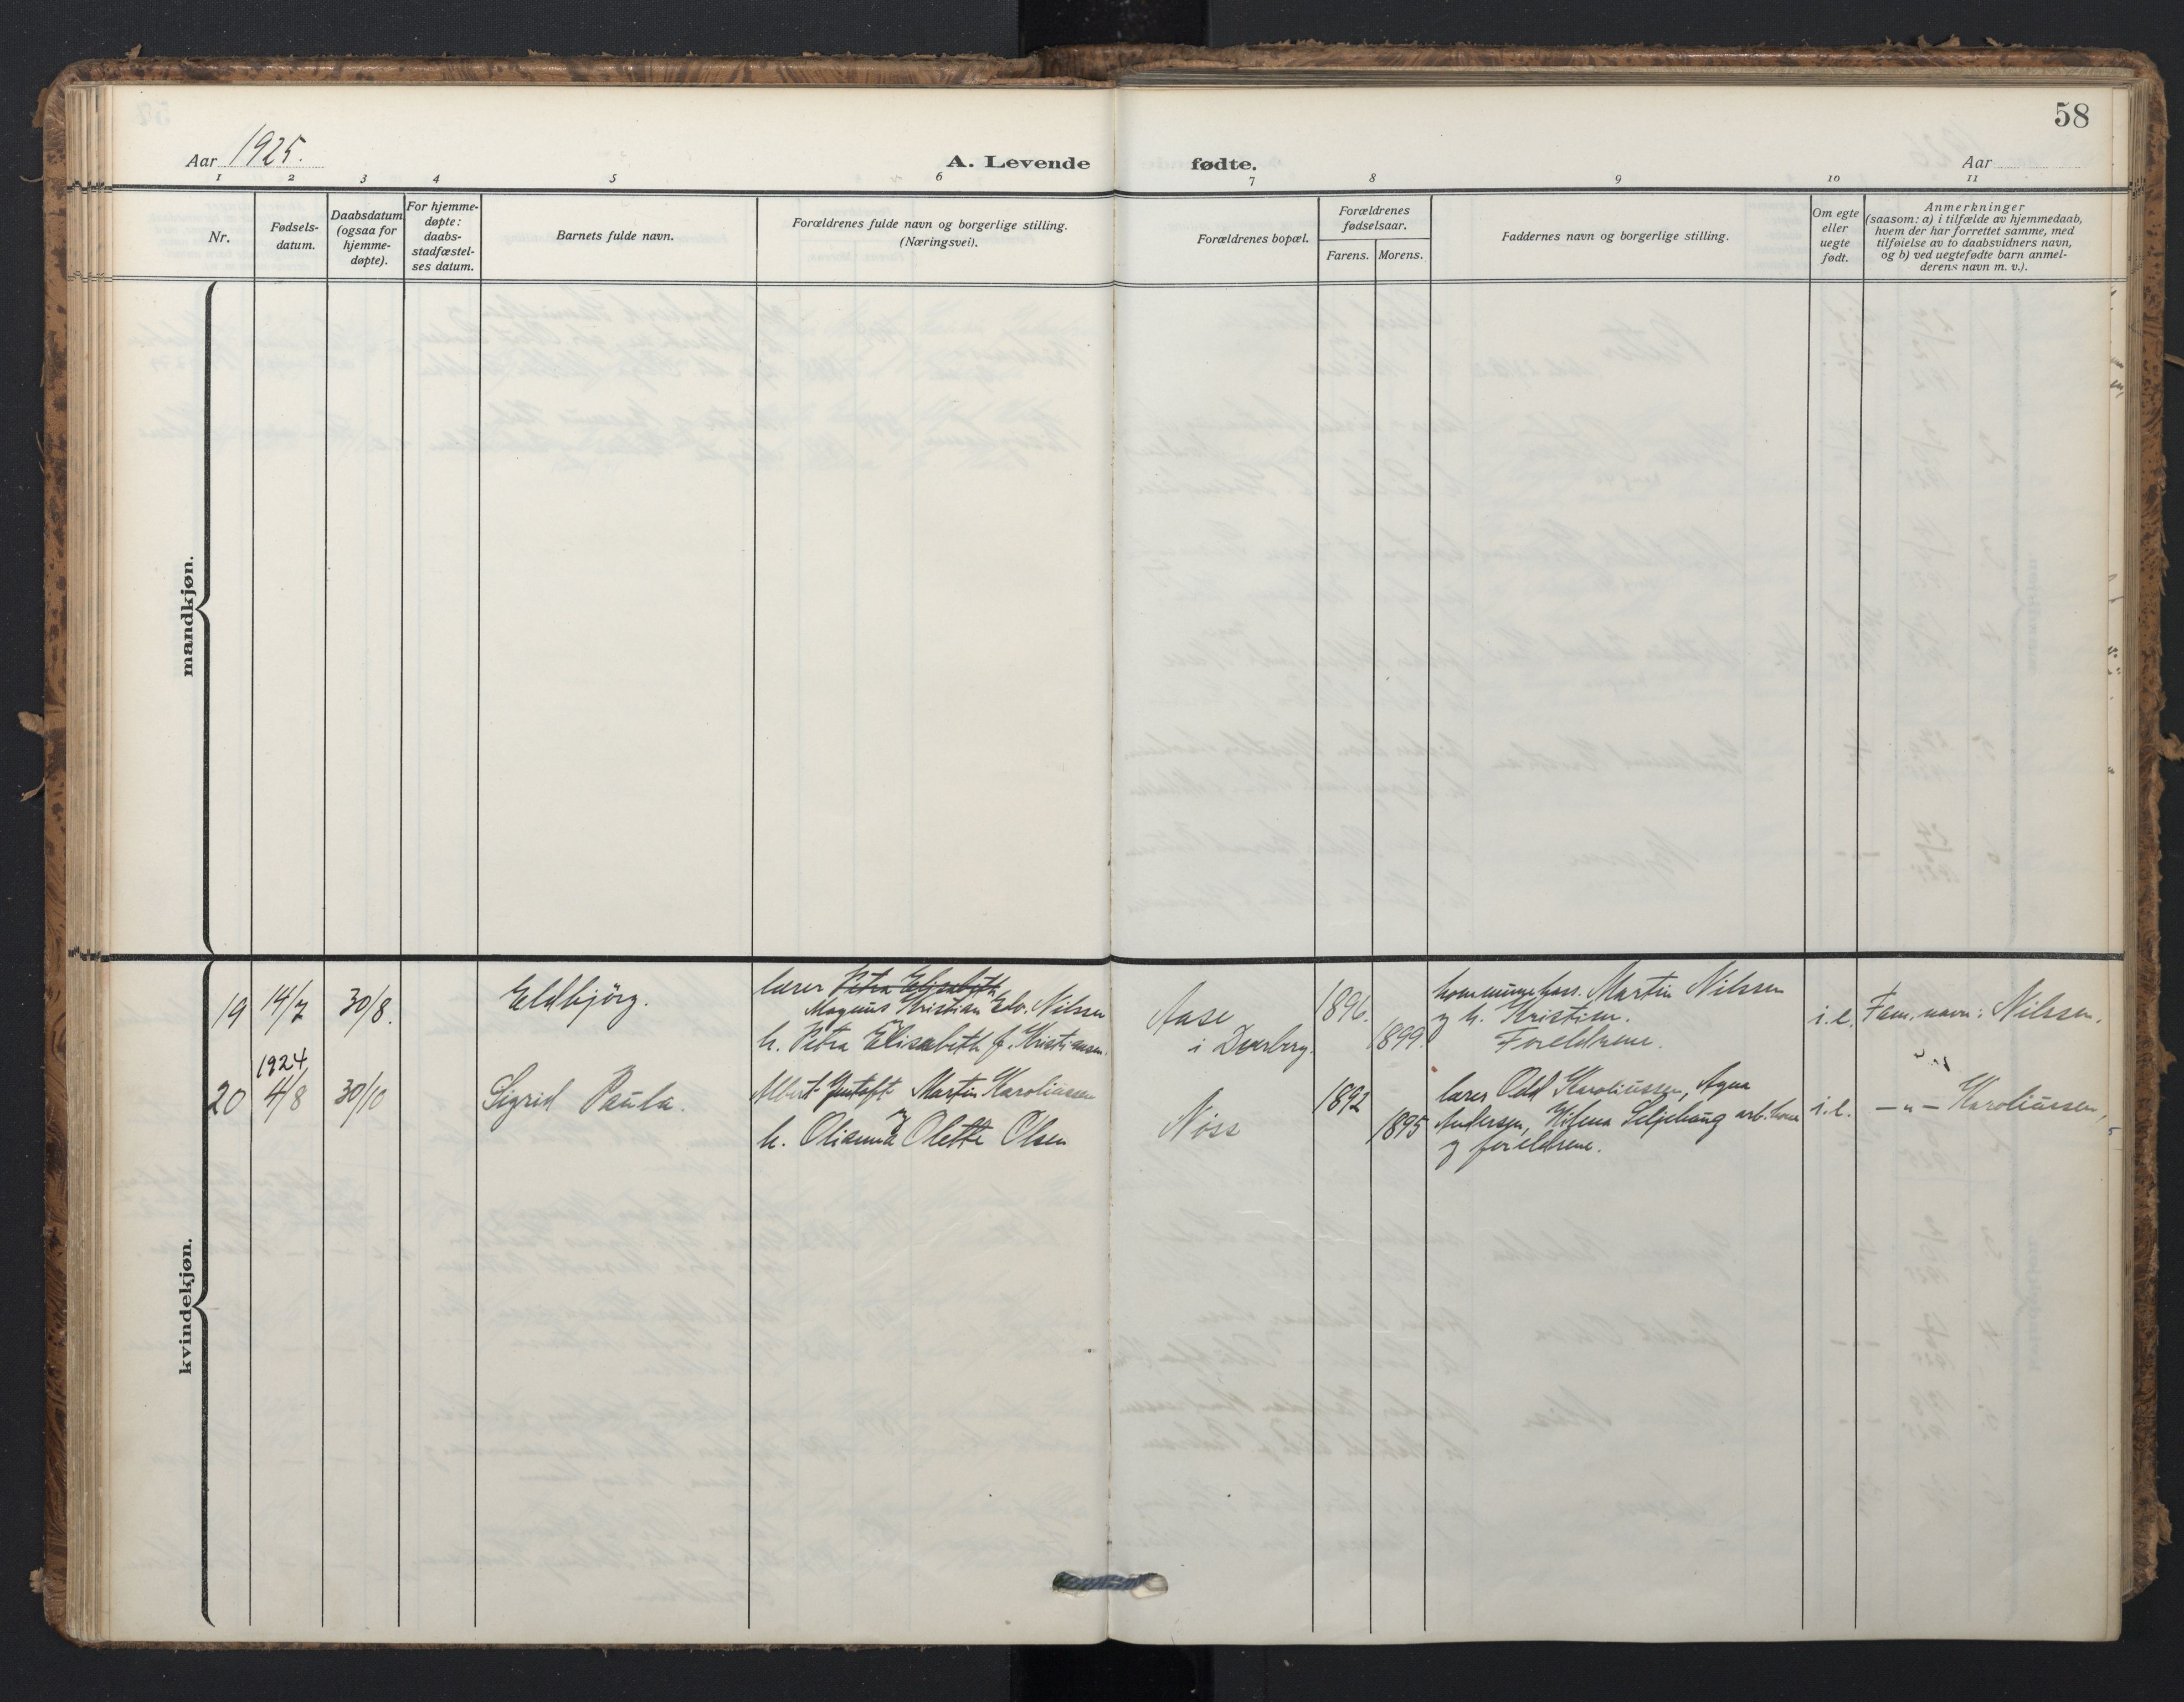 58
Aar 1925.
A. Levende fødte.
Aar
1 2 3 4 5 6 7 8 9 10 11
Nr.
Fødsels-
datum.
Daabsdatum
(ogsaa for
hjemme-
døpte).
For hjemme-
døpte:
daabs-
stadfæstel-
ses datum.
Barnets fulde navn.
Forældrenes fulde navn og borgerlige stilling.
(Næringsvei).
Forældrenes bopæl.
Forældrenes
fødselsaar.
Farens. Morens.
Faddernes navn og borgerlige stilling.
Om egte
eller
uegte
født.
Anmerkninger
(saasom: a) i tilfælde av hjemmedaab,
hvem der har forrettet samme, med
tilføielse av to daabsvidners navn,
og b) ved uegtefødte barn anmel-
derens navn m. v.).
mandkjøn.
kvindekjøn.
19
14/7
30/8.
Eldbjörg.
lærer Petra Elisabeth
Magnus Kristian Edv. Nilssen
h. Petra Elisabeth f. Kristiansen.
Aase
i Dverberg.
1896.
1899.
Martin Nilssen
og h. Kristine.
Foreldrene.
i.e.
Fam. navn: Nilssen.
20
1924
4/8
30/10
Sigrid Paula.
Albert Martin Karoliussen
h. Olianna Olette Olsen
Nöss
1892
1895
lærer Odd Karoliussen, Agna
Andersen, Helena
og foreldrene.
i.e.
—„— Karoliussen,